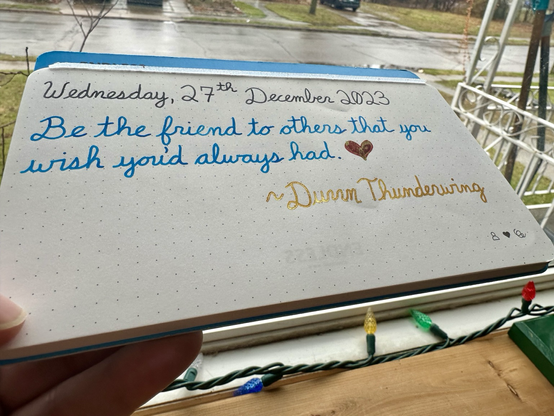 Wednesday, 27th December 2023
Be the friend to others that you
wish you'd always had. ♥
~Durrn Thunderwing